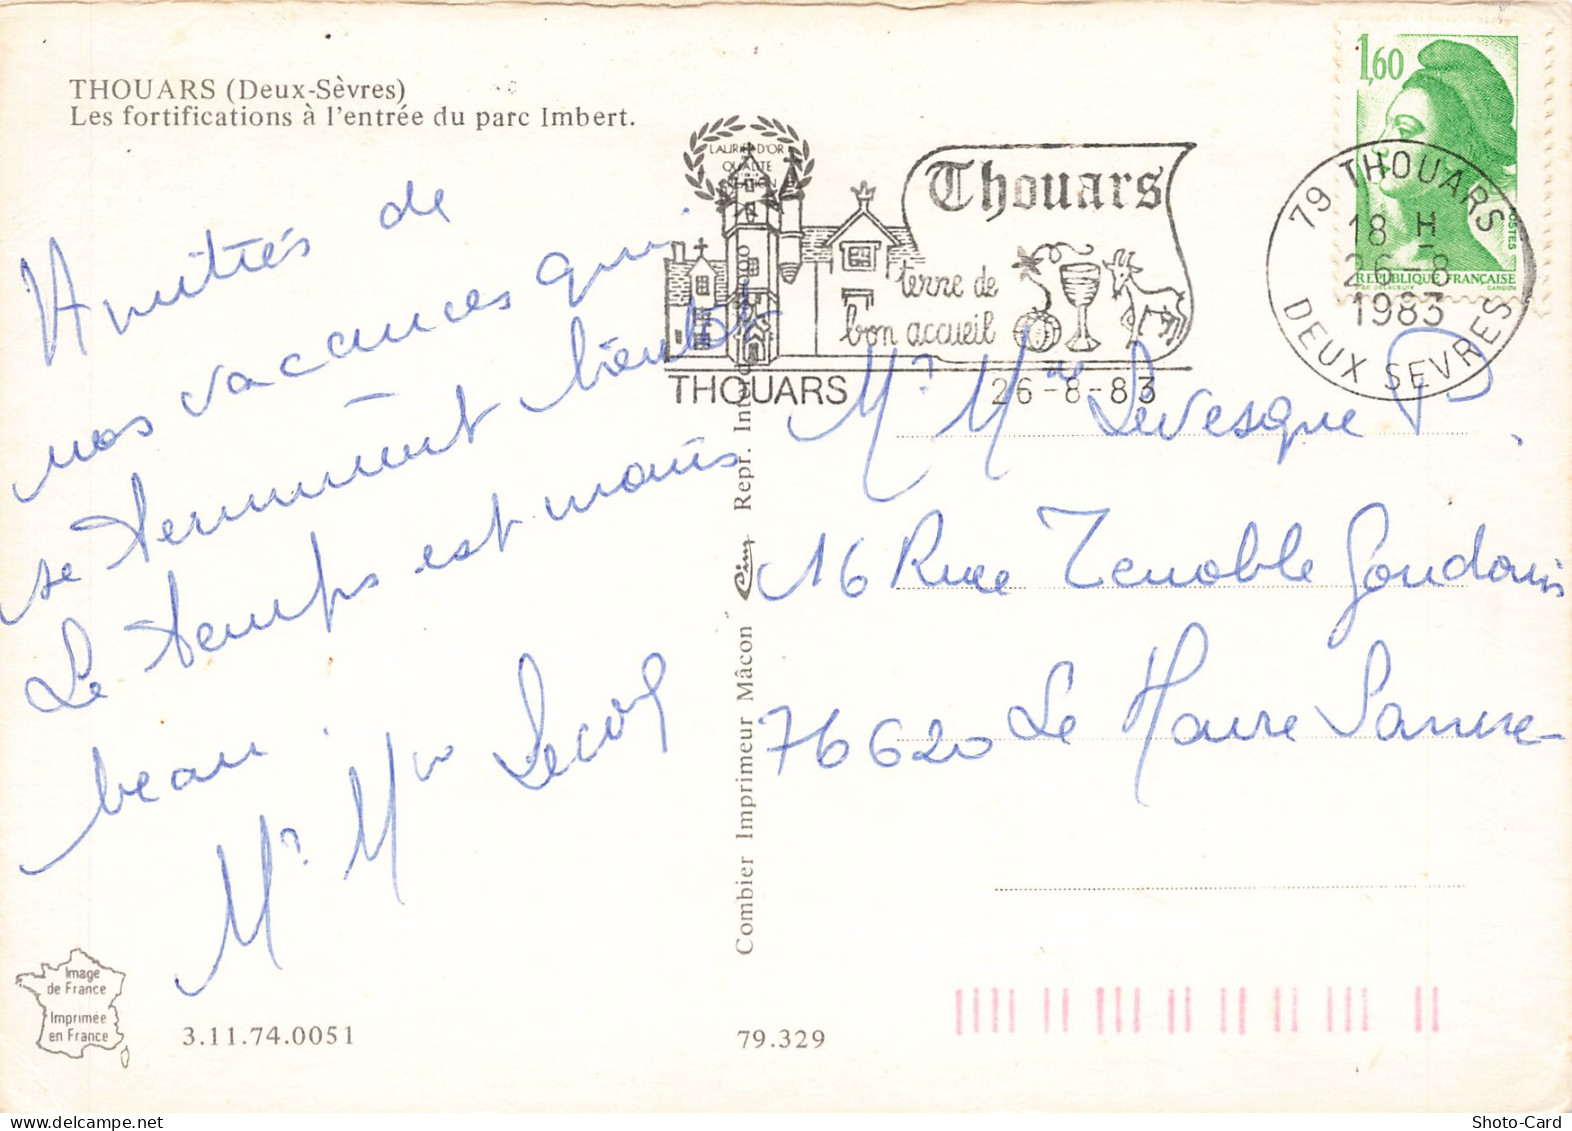 THOUARS (Deux-Sèvres)
Les fortifications à l'entrée du parc Imbert.
Amitiés de
nos vacances qui
se terminent bientot
Le temps est mais
beau.
Mr Mme
LAURIER D'OR
QUALITE
Thouars
terre de
bon accueil
THOUARS 26-8-83
1,60
POSTES
REPUBLIQUE FRANÇAISE
79 THOUARS
18 H
26-8
1983
DEUX SEVRES
Mr Mme Levesque P.
16 Rue Tenoble Goudouin
76620 Le Havre Sanvic
Combier Imprimeur Mâcon Cim Repr. Interdite
Image
de France
Imprimée
en France
3.11.74.0051
79.329
Shoto-Card